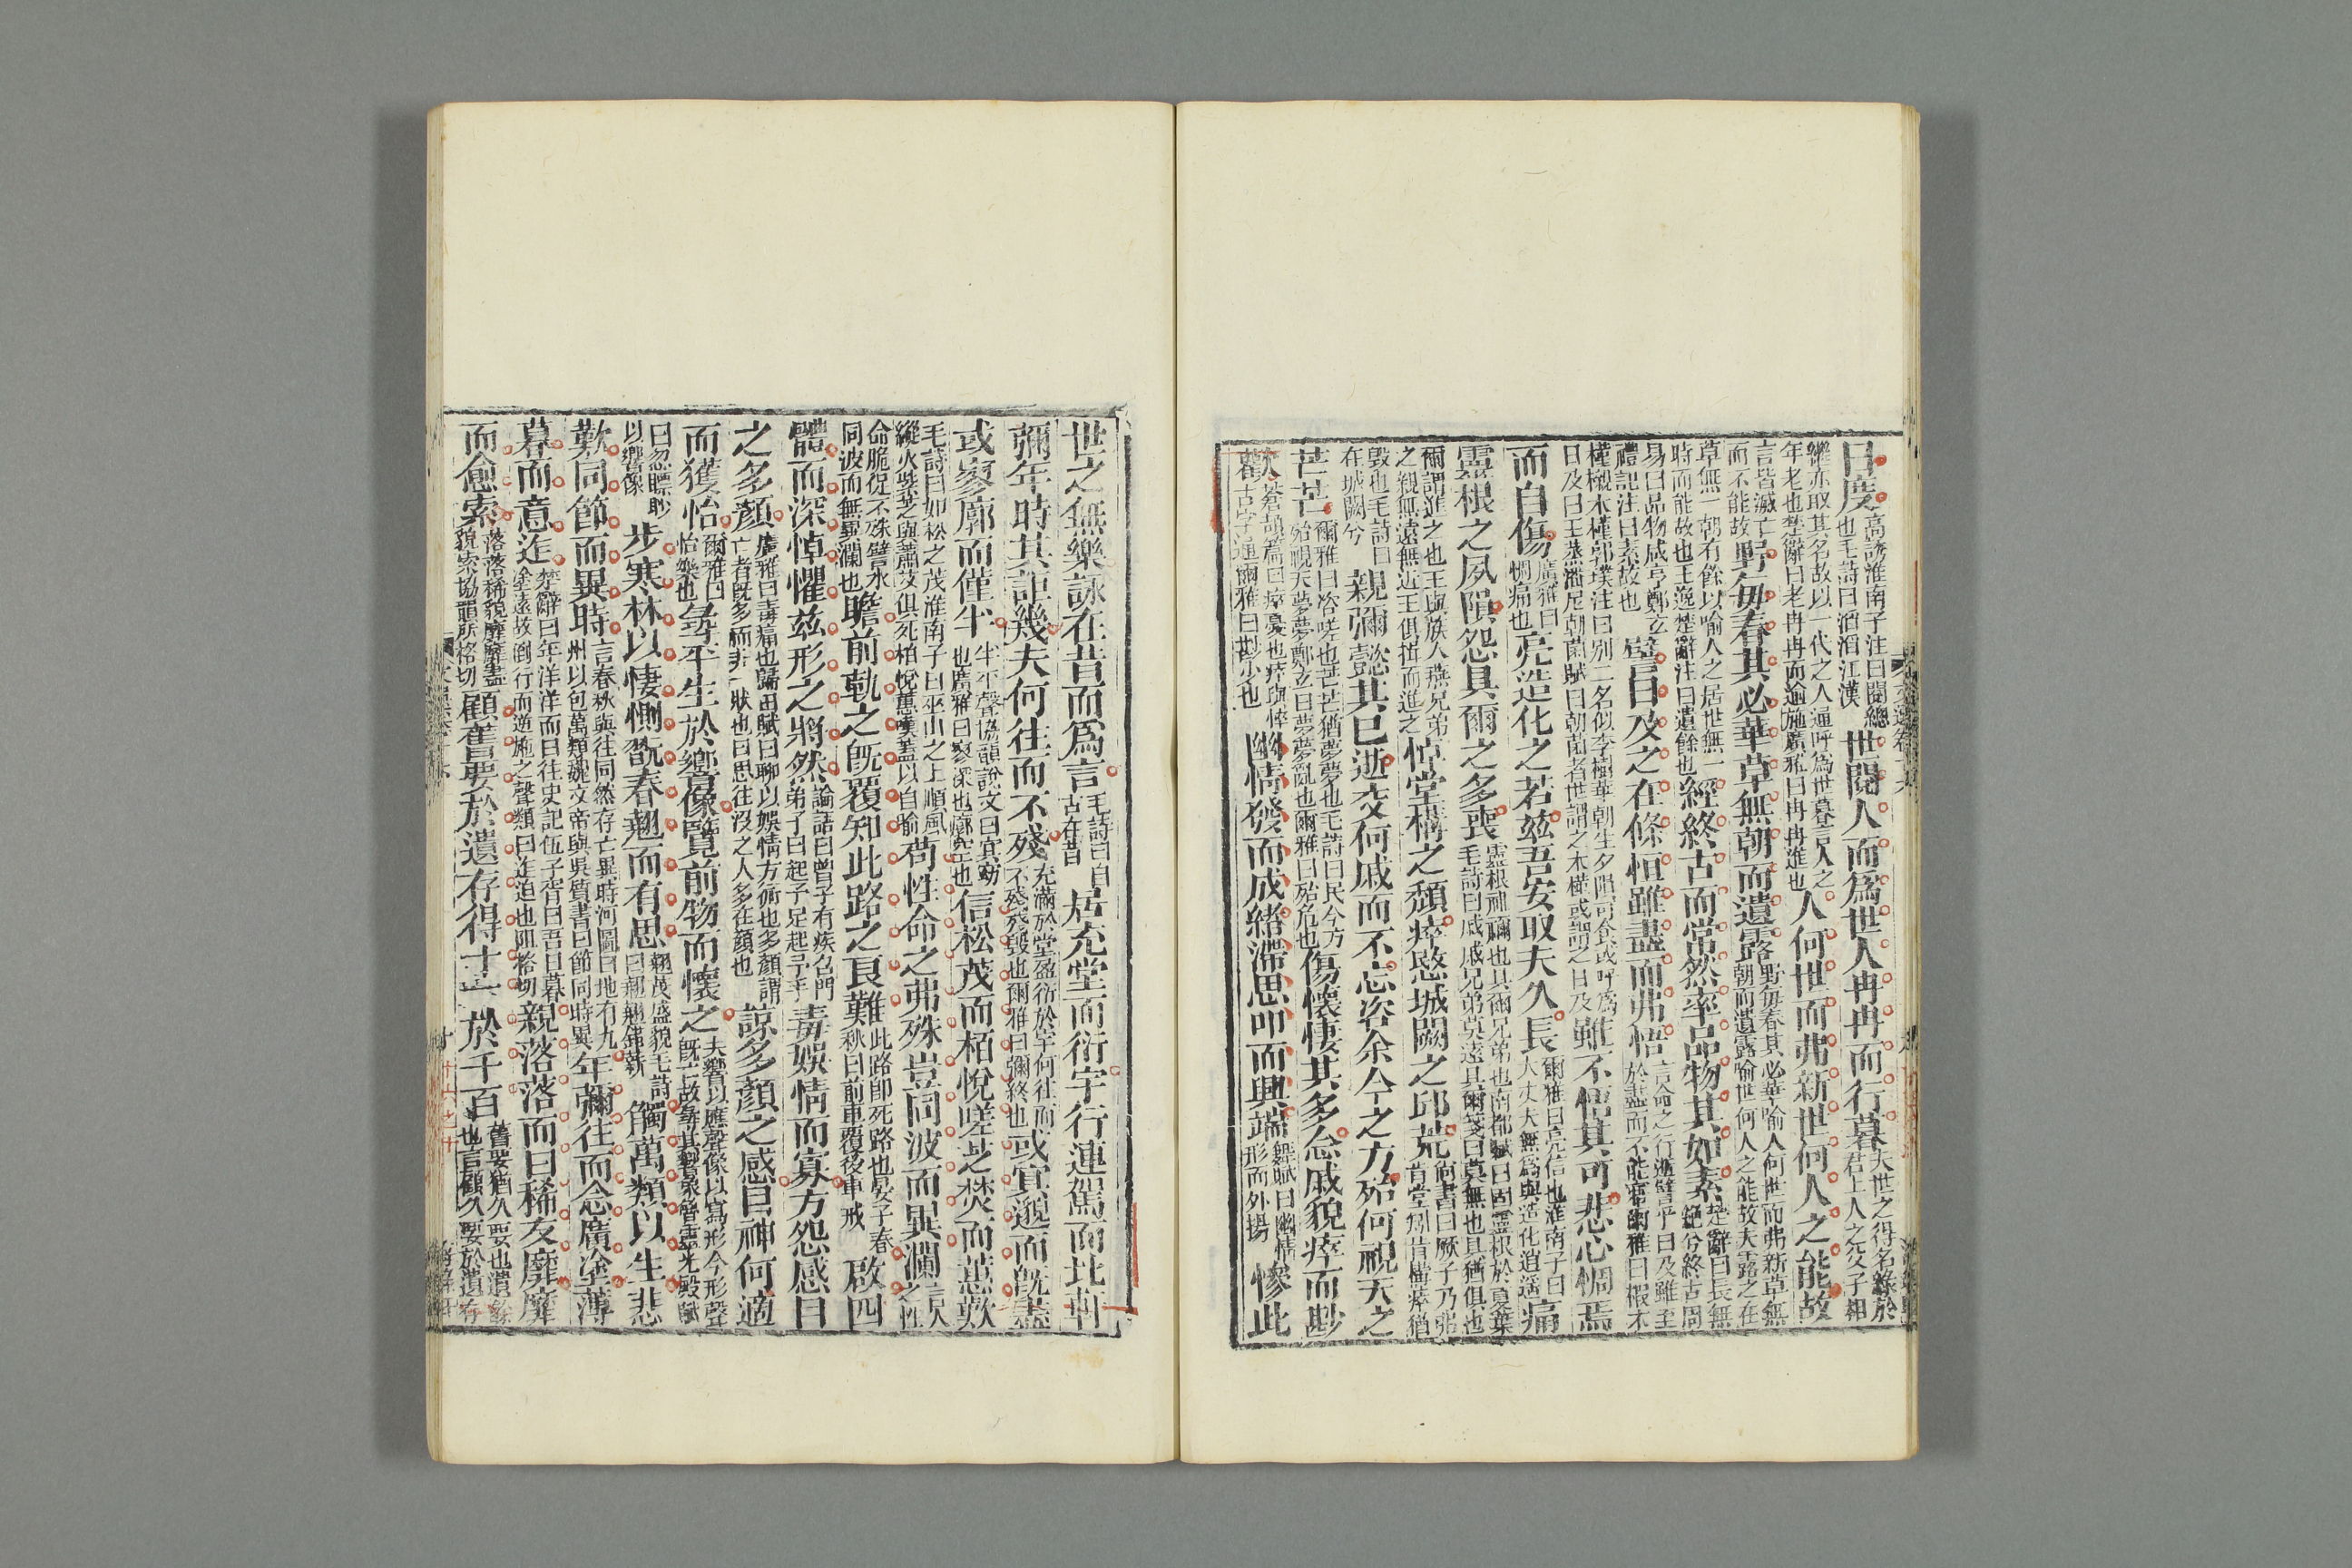 日度高誘淮南子注曰閱總也毛詩曰滔滔江漢世閱人而爲世人冉冉而行暮夫世之得名緣於君上人之父子相
繼亦取其名故以一代之人通呼爲世暮言人之年老也楚辭曰老冉冉而逾施廣雅曰冉冉進也人何世而弗新世何人之能故
言皆滅亡而不能故野每春其必華草無朝而遺露野每春其必華喻人何世而弗新草無朝而遺露喻世何人之能故夫露之在
草無一朝有餘以喻人之居世無一時而能故也王逸楚辭注曰遺餘也經終古而常然率品物其如素楚辭曰長無絕兮終古周
易曰品物咸亨鄭玄禮記注曰素故也譬日及之在條恒雖盡而弗悟言命之行逝譬乎日及雖至於盡而不能寤爾雅曰椵木
槿櫬木槿郭璞注曰別二名似李樹華朝生夕隕可食或呼爲日及曰王蒸潘尼朝菌賦曰朝菌者世謂之木槿或謂之日及雖不悟其可悲心惆焉
而自傷廣雅曰惆痛也亮造化之若茲吾安取夫久長爾雅曰亮信也淮南子曰大丈夫無爲與造化逍遥痛
靈根之夙隕怨具爾之多喪靈根祖禰也具爾兄弟也南都賦曰固靈根於夏葉毛詩曰戚戚兄弟莫遠具爾箋曰莫無也具猶俱也
爾謂進之也王與族人燕兄弟之親無遠無近王俱揖而進之悼堂構之頹瘁慜城闕之邱荒尚書曰厥子乃弗肯堂矧肯構瘁猶
毀也毛詩曰在城闕兮親彌懿其已逝交何戚而不忘咨余今之方殆何視天之
芒芒爾雅曰咨嗟也芒芒猶夢夢也毛詩曰民今方殆視天夢夢鄭玄曰夢夢亂也爾雅曰殆危也傷懷悽其多念戚貌瘁而尠
歡蒼頡篇曰瘁憂也瘁與悴古字通爾雅曰尠少也幽情發而成緒滯思叩而興端舞賦曰幽情形而外揚慘此
世之無樂詠在昔而爲言毛詩曰自古在昔居充堂而衍宇行連駕而比軒
彌年時其詎幾夫何往而不殘充滿於堂盈衍於宇何往而不殘殘毀也爾雅曰彌終也或冥邈而既盡
或寥廓而僅半半平聲協韻說文曰冥窈也廣雅曰寥深也廓空也信松茂而栢悅嗟芝焚而蕙歎
毛詩曰如松之茂淮南子曰巫山之上順風縱火紫芝與蕭艾俱死栢悅蕙嘆蓋以自喻苟性命之弗殊豈同波而異瀾言人之性
命脆促不殊譬水同波而無異瀾也瞻前軌之既覆知此路之良難此路即死路也晏子春秋曰前車覆後車戒啟四
體而深悼懼茲形之將然論語曰曾子有疾召門弟子曰起予足起予手毒娛情而寡方怨感目
之多顏廣雅曰毒痛也歸田賦曰聊以娛情方術也多顏謂亡者既多而非一狀也曰思往沒之人多在顏也諒多顏之感目神何適
而獲怡爾雅曰怡樂也尋平生於響像覽前物而懷之夫響以應聲像以寫形今形聲既亡故尋其響象魯靈光殿賦
曰忽瞟眇以響像步寒林以悽惻翫春翹而有思翹茂盛貌毛詩曰翹翹錯薪觸萬類以生悲
歎同節而異時言春秋與往同然存亡異時河圖曰地有九州以包萬類魏文帝與吳質書曰節同時異年彌往而念廣塗薄
暮而意迮楚辭曰年洋洋而日往史記伍子胥曰吾日暮塗遠故倒行而逆施之聲類曰迮迫也阻格切親落落而日稀友靡靡
而愈索落落稀貌靡靡盡貌索協韻所格切顧舊要於遺存得十一於千百舊要猶久要也遺餘也言顧久要於遺存